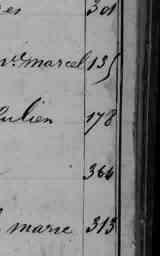 301
marcel 135
ulien 178
364
marie 313